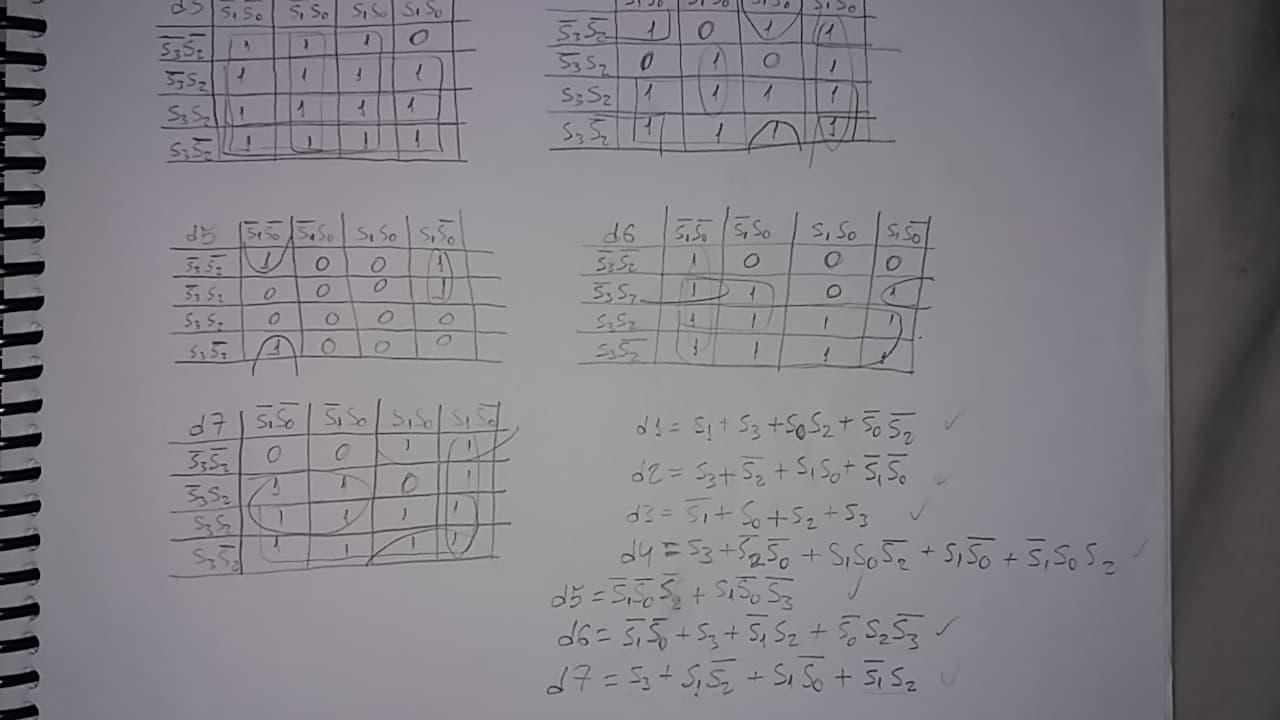 d3 S̅₁S̅₀ S̅₁S₀ S₁S₀ S₁S̅₀
S̅₃S̅₂ 1 1 1 0
S̅₃S₂ 1 1 1 1
S₃S₂ 1 1 1 1
S₃S̅₂ 1 1 1 1
S̅₃S̅₂ 1 0 1 1
S̅₃S₂ 0 1 0 1
S₃S₂ 1 1 1 1
S₃S̅₂ 1 1 1 1
d5 S̅₁S̅₀ S̅₁S₀ S₁S₀ S₁S̅₀
S̅₃S̅₂ 1 0 0 1
S̅₃S₂ 0 0 0 1
S₃S₂ 0 0 0 0
S₃S̅₂ 1 0 0 0
d6 S̅₁S̅₀ S̅₁S₀ S₁S₀ S₁S̅₀
S̅₃S̅₂ 1 0 0 0
S̅₃S₂ 1 1 0 1
S₃S₂ 1 1 1 1
S₃S̅₂ 1 1 1 1
d7 S̅₁S̅₀ S̅₁S₀ S₁S₀ S₁S̅₀
S̅₃S̅₂ 0 0 1 1
S̅₃S₂ 1 1 0 1
S₃S₂ 1 1 1 1
S₃S̅₂ 1 1 1 1
d1 = S₁ + S₃ + S₀S₂ + S̅₀S̅₂ ✓
d2 = S₃ + S̅₂ + S₁S₀ + S̅₁S̅₀ ✓
d3 = S̅₁ + S₀ + S₂ + S₃ ✓
d4 = S₃ + S̅₂S̅₀ + S₁S₀S̅₂ + S₁S̅₀ + S̅₁S₀S₂ ✓
d5 = S̅₁S̅₀S̅₂ + S₁S̅₀S̅₃ ✓
d6 = S̅₁S̅₀ + S₃ + S̅₁S₂ + S̅₀S₂S̅₃ ✓
d7 = S₃ + S₁S̅₂ + S₁S̅₀ + S̅₁S₂ ✓